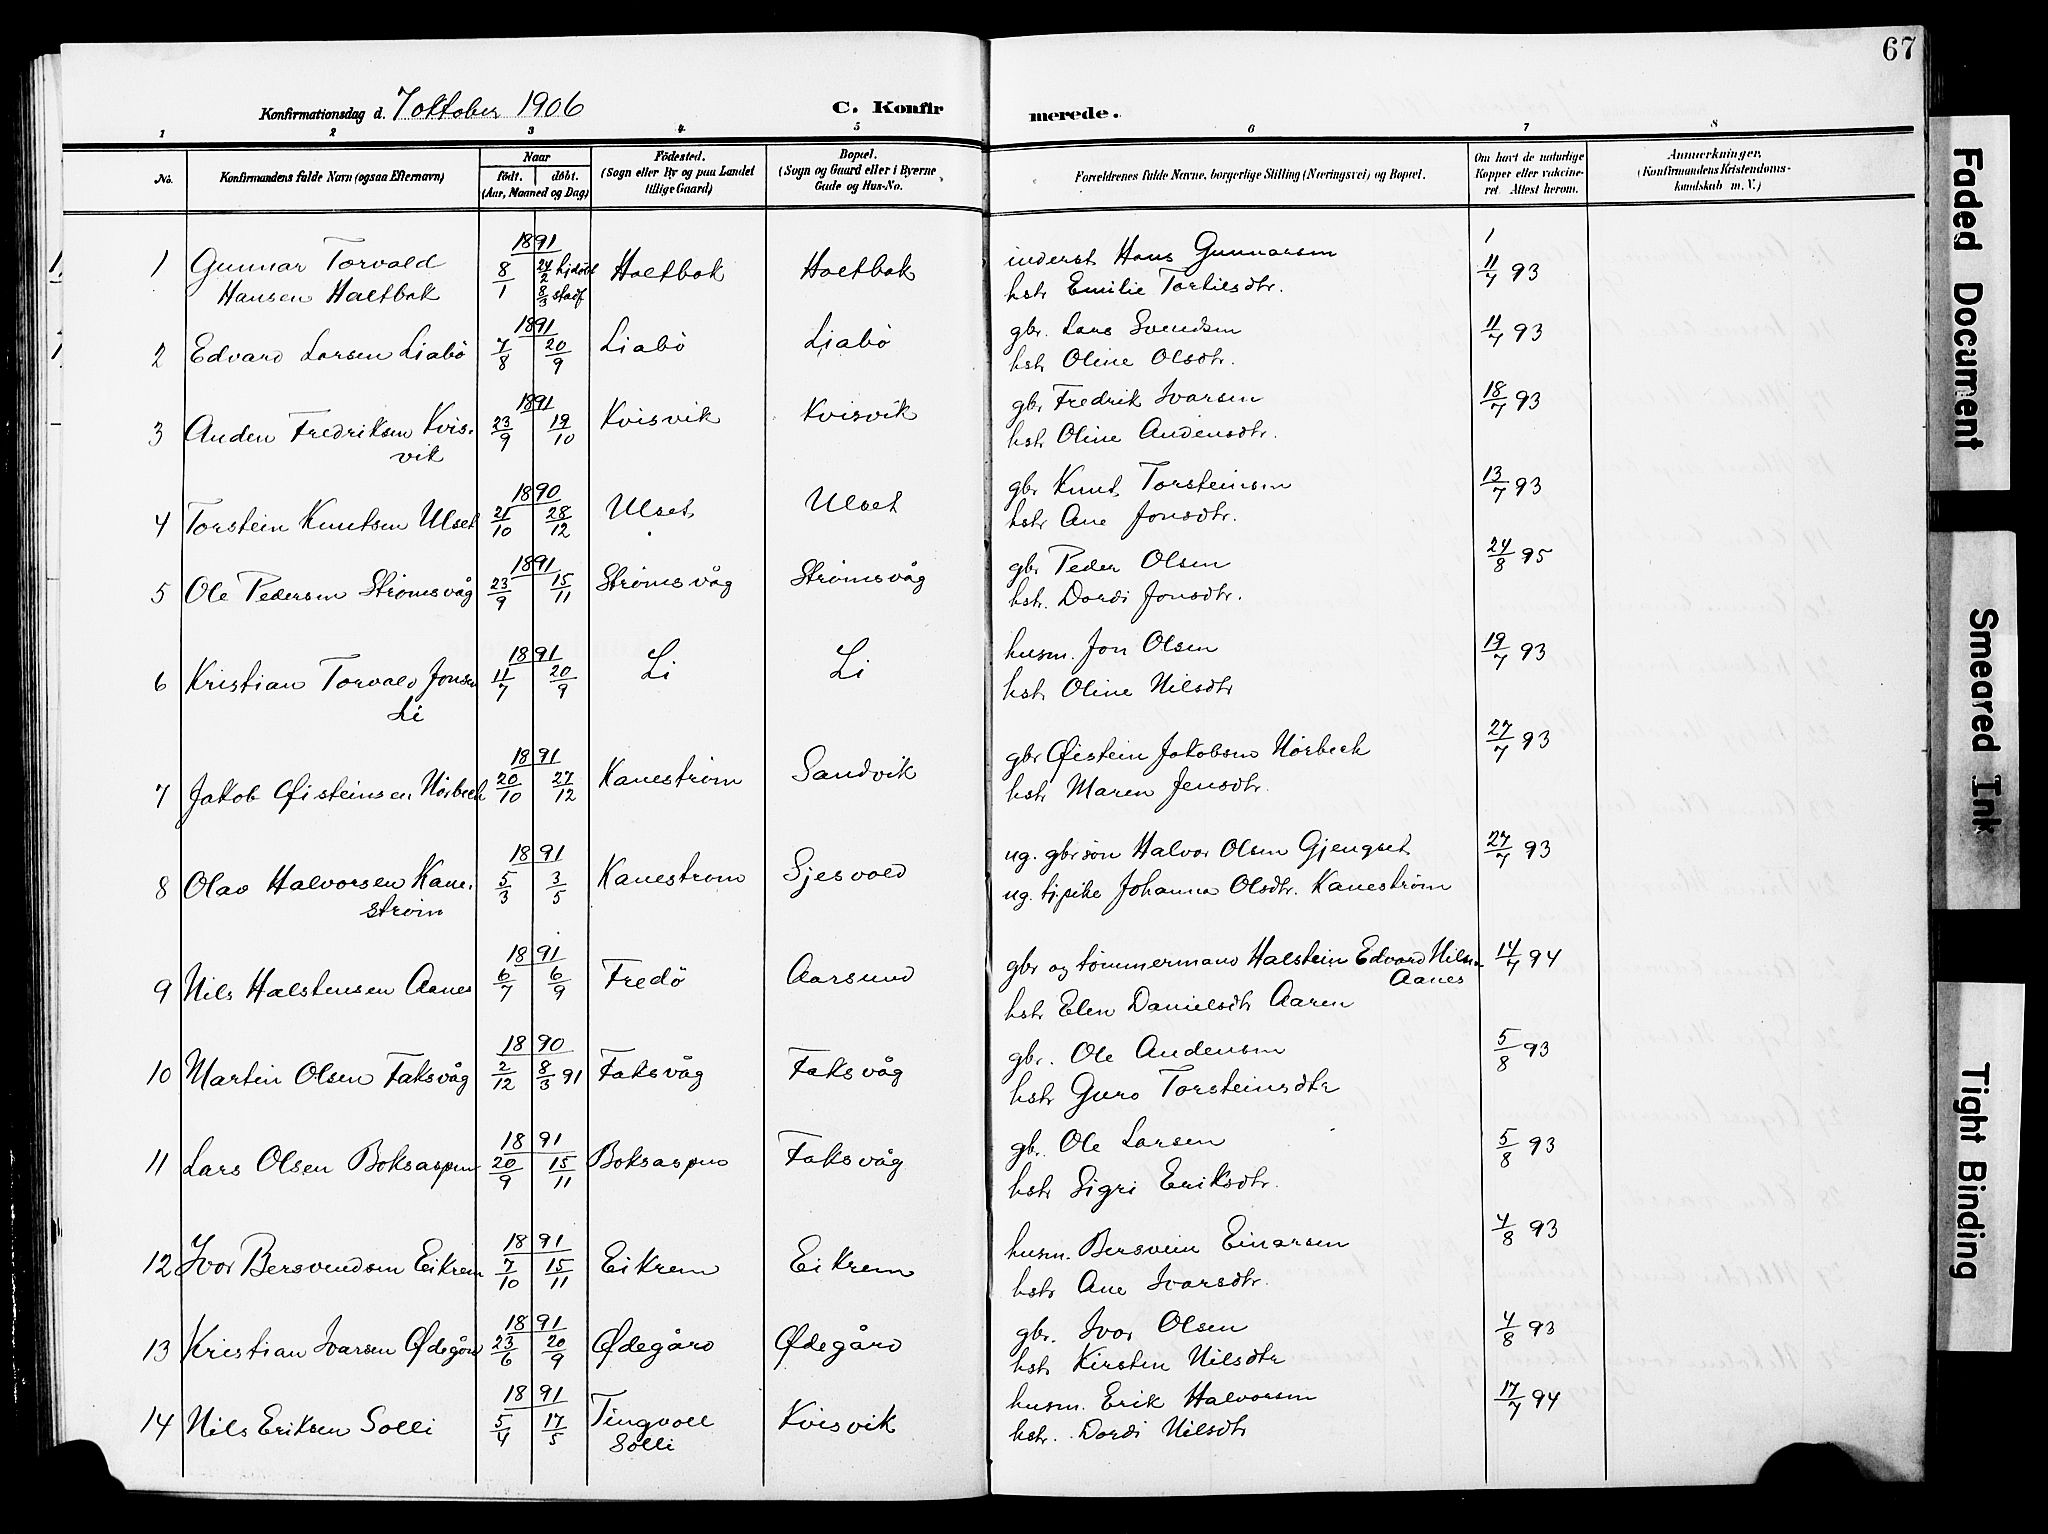 67
Konfirmationsdag d. 7 oktober 1906
C. Konfirmerede.
1 2 3 4. 5 6 7 8
No.
Konfirmandens fulde Navn (ogsaa Efternavn)
Naar
födt. döbt.
(Aar, Maaned og Dag)
Födested.
(Sogn eller By og paa Landet
tillige Gaard)
Bopæl.
(Sogn og Gaard eller i Byerne
Gade og Hus-No.
Forældrenes fulde Navne, borgerlige Stilling (Næringsvei) og Bopæl.
Om havt de naturlige
Kopper eller vakcine-
ret. Attest herom.
Anmærkninger,
(Konfirmandens Kristendoms-
kundskab m. V.)
1 Gunnar Torvald
Hansen Holtbak
1891
8/1 24/2 hjdöbt
8/3 stadf
Holtbak Holtbak
inderst Hans Gunnarsen
hstr Emilie Torkilsdtr.
11/7 93
2 Edvard Larsen Liabö
1891
7/8 20/9
Liabö Liabö
gbr. Lars Svendsen
hstr Oline Olsdtr.
11/7 93
3 Anden Fredriksen Kvis-
vik
1891
23/9 19/10
Kvisvik Kvisvik
gbr Fredrik Ivarsen
hstr Oline Andensdtr.
18/7 93
4 Torstein Knutsen Ulset
1890
21/10 28/12
Ulset Ulset
gbr Knut Torsteinsen
hstr Ane Jonsdtr.
13/7 93
5 Ole Pedersen Strömsvåg
1891
23/9 15/11
Strömsvåg Strömsvåg
gbr Peder Olsen
hstr. Dordi Jonsdtr.
24/8 95
6 Kristian Torvald Jonsen
Li
1891
11/7 20/9
Li Li
husm. Jon Olsen
hstr Oline Nilsdtr
19/7 93
7 Jakob Øisteinsen Nörbech
1891
20/10 27/12
Kaneström Sandvik
gbr Øistein Jakobsen Nörbech
hstr Maren Jensdtr.
27/7 93
8 Olav Halvorsen Kane-
ström
1891
5/3 3/5
Kaneström Sjesvold
ug. gbrsön Halvor Olsen Gjengset
ug. tj.pike Johanna Olsdtr. Kaneström
27/7 93
9 Nils Halstensen Aanes
1891
6/7 6/9
Fredö Aarsund
gbr og tömmermand Halstein Edvard Nilsen
Aanes
hstr Elen Danielsdtr Aaren
14/7 94
10 Martin Olsen Faksvåg
1890
2/12 8/3 91
Faksvåg Faksvåg
gbr. Ole Andensen
hstr Guro Torsteinsdtr
5/8 93
11 Lars Olsen Boksaspen
1891
20/9 15/11
Boksaspen Faksvåg
gbr. Ole Larsen
hstr Sigri Eriksdtr.
5/8 93
12 Ivor Bersvendsen Eikrem
1891
7/10 15/11
Eikrem Eikrem
husm. Bersvein Einarsen
hstr Ane Ivarsdtr.
4/8 93
13 Kristian Ivarsen Ødegård
1891
23/6 20/9
Ødegård Ødegård
gbr. Ivor Olsen
hstr Kirsten Nilsdtr
4/8 93
14 Nils Eriksen Solli
1891
5/4 17/5
Tingvoll
Solli
Kvisvik
husm. Erik Halvorsen
hstr. Dordi Nilsdtr
17/7 94
Faded Document
Smeared Ink
Tight Binding